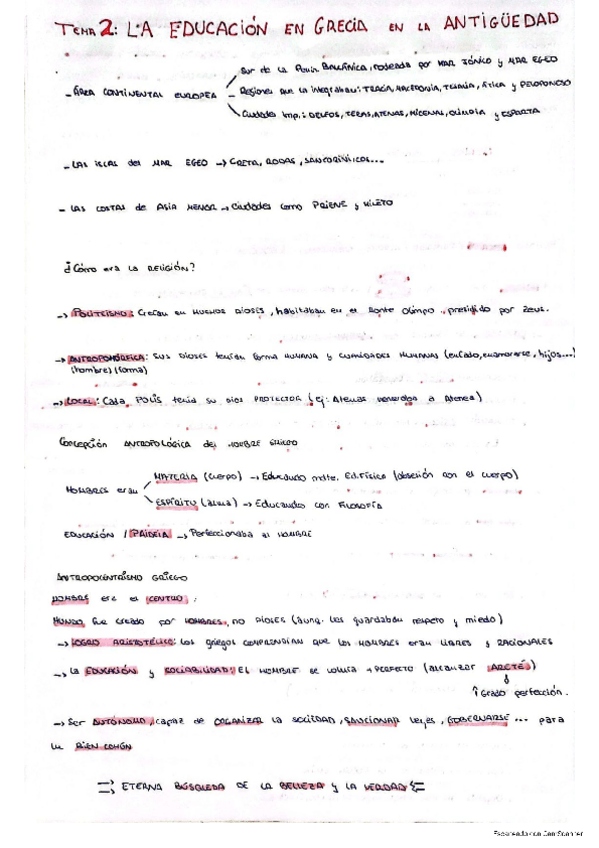 TEMA 2: LA EDUCACIÓN EN GRECIA EN LA ANTIGÜEDAD
- ÁREA CONTINENTAL EUROPEA
Sur de la Penín. BALCÁNICA, rodeada por MAR JÓNICO y MAR EGEO
Regiones que la integraban: TRACIA, MACEDONIA, TESALIA, ÁTICA y PELOPONESO
Ciudades imp.: DELFOS, TEBAS, ATENAS, MICENAS, OLIMPIA y ESPARTA
- LAS ISLAS del MAR EGEO → CRETA, RODAS,
- LAS COSTAS de ASIA MENOR → Ciudades como PRIENE y MILETO
¿Cómo era la RELIGIÓN?
→ POLITEÍSMO: Creían en MUCHOS DIOSES, habitaban en el Monte Olimpo, presidido por Zeus.
→ ANTROPOMÓRFICA: SUS DIOSES tenían FORMA HUMANA y HUMANAS (enfado, enamorarse, hijos...)
(hombre) (forma)
→ LOCAL: Cada POLIS tenía su DIOS PROTECTOR (ej: Atenas veneraba a Atenea)
Concepción ANTROPOLÓGICA del HOMBRE GRIEGO
HOMBRES eran
MATERIA (cuerpo) → Educando mdte. Ed. Física (obsesión con el cuerpo)
ESPÍRITU (alma) → Educando con FILOSOFÍA
EDUCACIÓN / PAIDEIA → Perfeccionaba al HOMBRE
ANTROPOCENTRISMO GRIEGO
HOMBRE era el CENTRO:
MUNDO fue creado por HOMBRES, no DIOSES (aunq. les guardaban respeto y miedo)
→ LOGRO ARISTOTÉLICO: los griegos COMPRENDÍAN que los HOMBRES eran LIBRES y RACIONALES
→ La EDUCACIÓN y SOCIABILIDAD: El HOMBRE se volvía + PERFECTO (alcanzar ARETÉ)
↑ Grado perfección.
→ Ser AUTÓNOMO, capaz de ORGANIZAR la SOCIEDAD, SANCIONAR leyes, GOBERNARSE... para
un BIEN COMÚN
ETERNA BÚSQUEDA DE LA BELLEZA y LA VERDAD
Escaneado con CamScanner